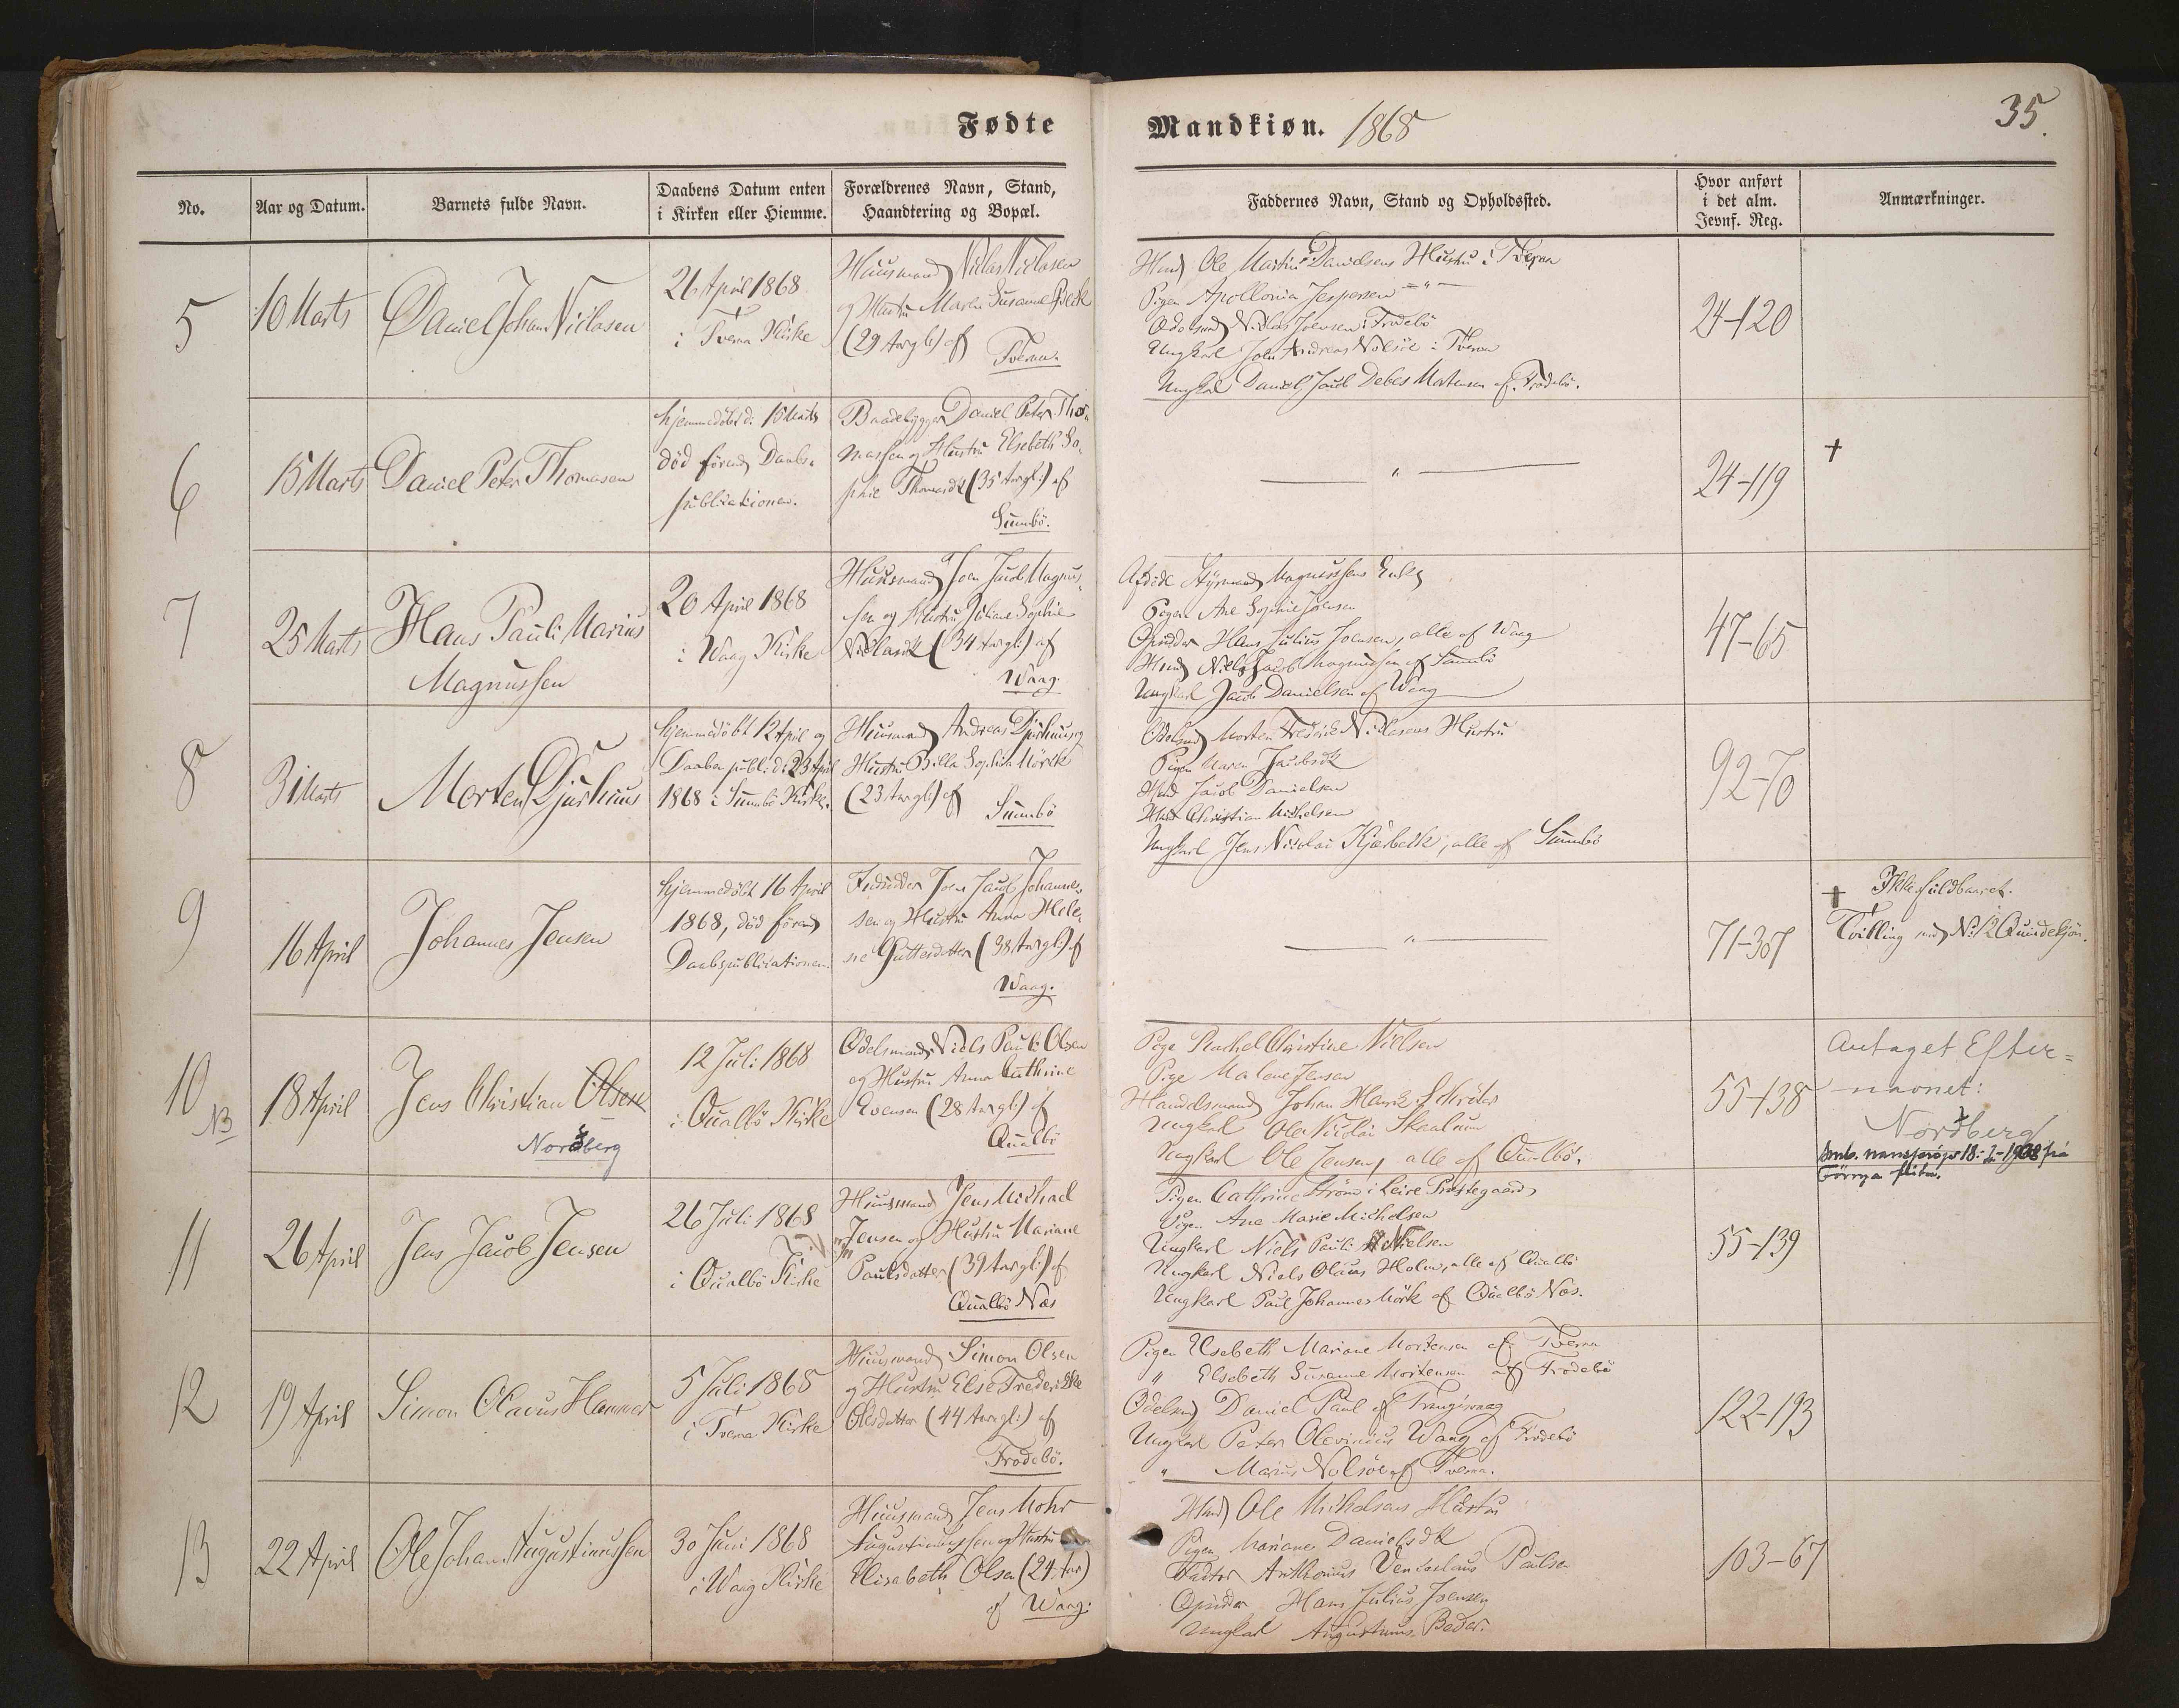 Fødte
Mandkiøn. 1868
35.
No.
Aar og Datum.
Barnets fulde Navn.
Daabens Datum enten
i Kirken eller Hiemme.
Forældrenes Navn, Stand,
Haandtering og Bopæl.
Faddernes Navn, Stand og Opholdssted.
Hvor anført
i det alm.
Jevnf. Reg.
Anmærkninger.
5
10 Marts
Daniel Johan Niclasen
26 April 1868
i Tveraa Kirke
Huusmand Niclas Niclasen
og Hustru Maren Susanne
(29 Aar gl:) af
Tveraa.
Ole Martin Danielsens Hustru i Tveraa
Pigen Apollonia Jespersen — " —
Niclas Joensen i Frodebö
Ungkarl Joen Andreas Nolsöe i Tveraa
Ungkarl Daniel Jacob Debes Mortensen af Frodebö.
24-120
6
15 Marts
Daniel Peter Thomasen
hjemmedöbt d: 15 Marts
död förend Daabs-
publicationen.
Baadebygger Daniel Peter Tho-
massen og Hustru Elsebeth So-
phie Thomasdt (35 Aar gl:) af
Sumbö.
"
24-119
+
7
25 Marts
Hans Pauli Marius
Magnussen
20 April 1868
i Waag Kirke
Huusmand Joen Jacob Magnus-
sen og Hustru Juliane Sophie
Niclasdt (34 Aar gl:) af
Waag.
Afdöde Styrmand Magnussens Enke
Pigen Ane Sophie Joensen
Opsidder Hans Julius Joensen, alle af Waag
Niels Jacob Magnussen af Sumbö
Ungkarl Jacob Danielsen af Waag
47-65
8
31 Marts
Morten Djurhuus
hjemmedöbt 12 April og
Daaben publ: d: 23 April
1868 i Sumbö Kirke.
Huusmand Andreas Djurhuus og
Hustru Billa Sophia Mörck
(23 Aar gl:) af
Sumbö
Odelsmd Morten Frederik Niclasens Hustru
Pigen Maren Jacobsdt
Jacob Danielsen
Christian Michelsen
Ungkarl Jens Nicolai Kjærbech, alle af Sumbö
92-70
9
16 April
Johannes Jensen
hjemmedöbt 16 April
1868, död förend
Daabspublicationen.
Indsidder Joen Jacob Johannes-
sen og Hustru Anna Hele-
ne Guttesdatter (38 Aar gl:) af
Waag.
"
71-307
+ Ikke fuldbaaret.
Tvilling med No: 12 Quindekjön.
10
NB
18 April
Jens Christian Olsen
Nordberg
12 Juli 1868
i Qualbö Kirke
Odelsmand Niels Pauli Olsen
og Hustru Anna Cathrine
Evensen (28 Aar gl:) af
Qualbö
Pige Rachel Christine Nielsen
Pige Malene Jensen
Handelsmand Johan Henrik Schröter
Ungkarl Ole Nicolai Skaalum
Ungkarl Ole Jensen, alle af Qualbö.
55-138
Antaget Efter=
navnet:
Nordberg
11
26 April
Jens Jacob Jensen
26 Juli 1868
i Qualbö Kirke
Huusmand Jens Michael
Jensen og Hustru Mariane
Poulsdatter (39 Aar gl:) af
Qualbö Næs
Pigen Cathrine Ström i Leire Præstegaard
Pigen Ane Marie Michelsen
Ungkarl Niels Pauli Nielsen
Ungkarl Niels Olaus Holm, alle af Qualbö
Ungkarl Paul Johannes Mörk af Qualbö Næs.
55-139
12
19 April
Simon Olavus Hammer
5 Juli 1868
i Tveraa Kirke
Huusmand Simon Olsen
og Hustru Else Frederikke
Olesdatter (44 Aar gl:) af
Frodebö.
Pigen Elsebeth Mariane Mortensen af Tveraa
" Elsebeth Susanne Mortensen af Frodebö
Odelsmd Daniel Paul af Trangisvaag
Ungkarl Peter Olevinius Waag af Frodebö
" Marius Nolsöe af Tveraa.
122-193
13
22 April
Ole Johan Augustinussen
30 Juni 1868
i Waag Kirke
Huusmand Jens Mohr
Augustinussen og Hustru
Elisabeth Olsen (24 Aar)
af Waag.
Ole Michelsens Hustru
Pigen Mariane Danielsdt
Factor Anthonius Venceslaus Paulsen
Opsidder Hans Julius Joensen
Ungkarl Augustinus Beder.
103-67